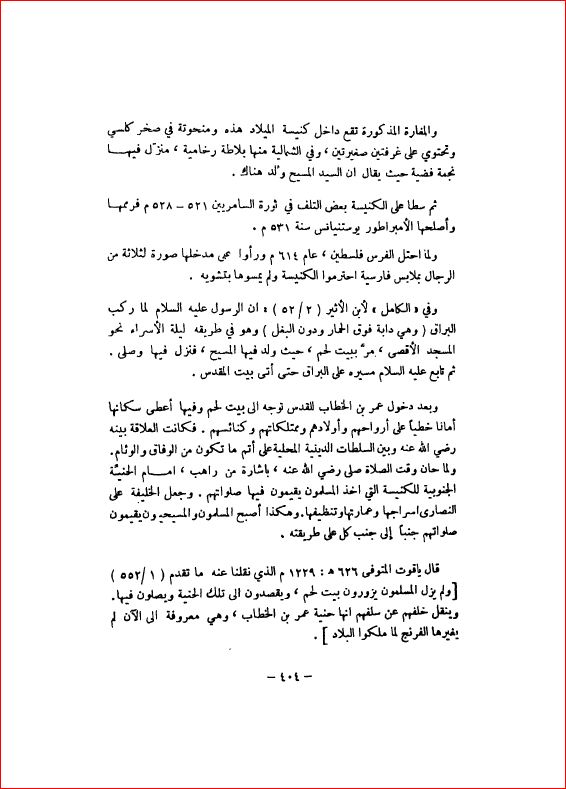 والمغارة المذكورة تقع داخل كنيسة الميلاد هذه ومنحوتة في صخر كلسي
وتحتوي على غرفتين صغيرتين ، وفي الشمالية منها بلاطة رخامية ، منزّل فيهـــا
نجمة فضية حيث يقال ان السيد المسيح وُلد هناك .
ثم سطا على الكنيسة بعض التلف في ثورة السامريين ٥٢١ – ٥٢٨ م فرممها
وأصلحها الأمبراطور يوستنيانس سنة ٥٣١ م .
ولما احتل الفرس فلسطين ، عام ٦١٤ م ورأوا على مدخلها صورة لثلاثة من
الرجال بملابس فارسية احترموا الكنيسة ولم يمسوها بتشويه .
وفي « الكامل » لأبن الأثير ( ٢/ ٥٢ ) : ان الرسول عليه السلام لما ركب
البراق ( وهي دابة فوق الحمار ودون البغل ) وهو في طريقه ليلة الأسراء نحو
المسجد الأقصى ، مرّ ببيت لحم ، حيث ولد فيها المسيح ، فنزل فيها وصلى .
ثم تابع عليه السلام مسيره على البراق حتى أتى بيت المقدس .
وبعد دخول عمر بن الخطاب للقدس توجه الى بيت لحم وفيها أعطى سكانها
أمانا خطياً على أرواحهم وأولادهم وممتلكاتهم وكنائسهم . فكانت العلاقة بينه
رضي الله عنه وبين السلطات الدينية المحلية على أتم ما تكون من الوفاق والوئام.
ولما حان وقت الصلاة صلى رضي الله عنه ، باشارة من راهب ، امـــام الحنيّة
الجنوبية للكنيسة التي اخذ المسلمون يقيمون فيها صلواتهم . وجعل الخليفة على
النصارى اسراجها وعمارتها وتنظيفها. وهكذا أصبح المسلمون والمسيحيون يقيمون
صلواتهم جنباً إلى جنب كل على طريقته .
قال ياقوت المتوفى ٦٢٦ ه : ١٢٢٩ م الذي نقلنا عنه ما تقدم ( ١/ ٥٥٢ )
[ ولم يزل المسلمون يزورون بيت لحم ، ويقصدون الى تلك الحنية ويصلون فيها.
وينقل خلفهم عن سلفهم انها حنية عمر بن الخطاب ، وهي معروفة الى الآن لم
يغيرها الفرنج لما ملكوا البلاد ] .
– ٤٠٤ –